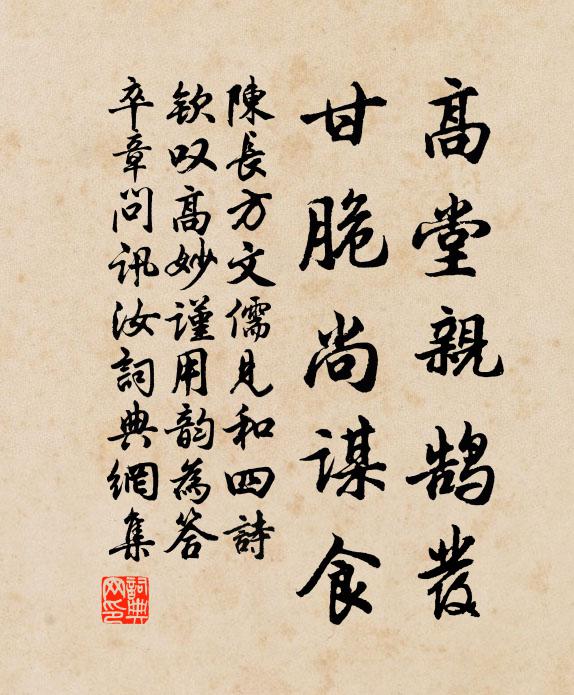 高堂親鵠髮
甘脆尚謀食
陳長方文儒見和四詩
欽叹高妙謹用韵為答
卒章問訊汝詞典網集
詞典網印